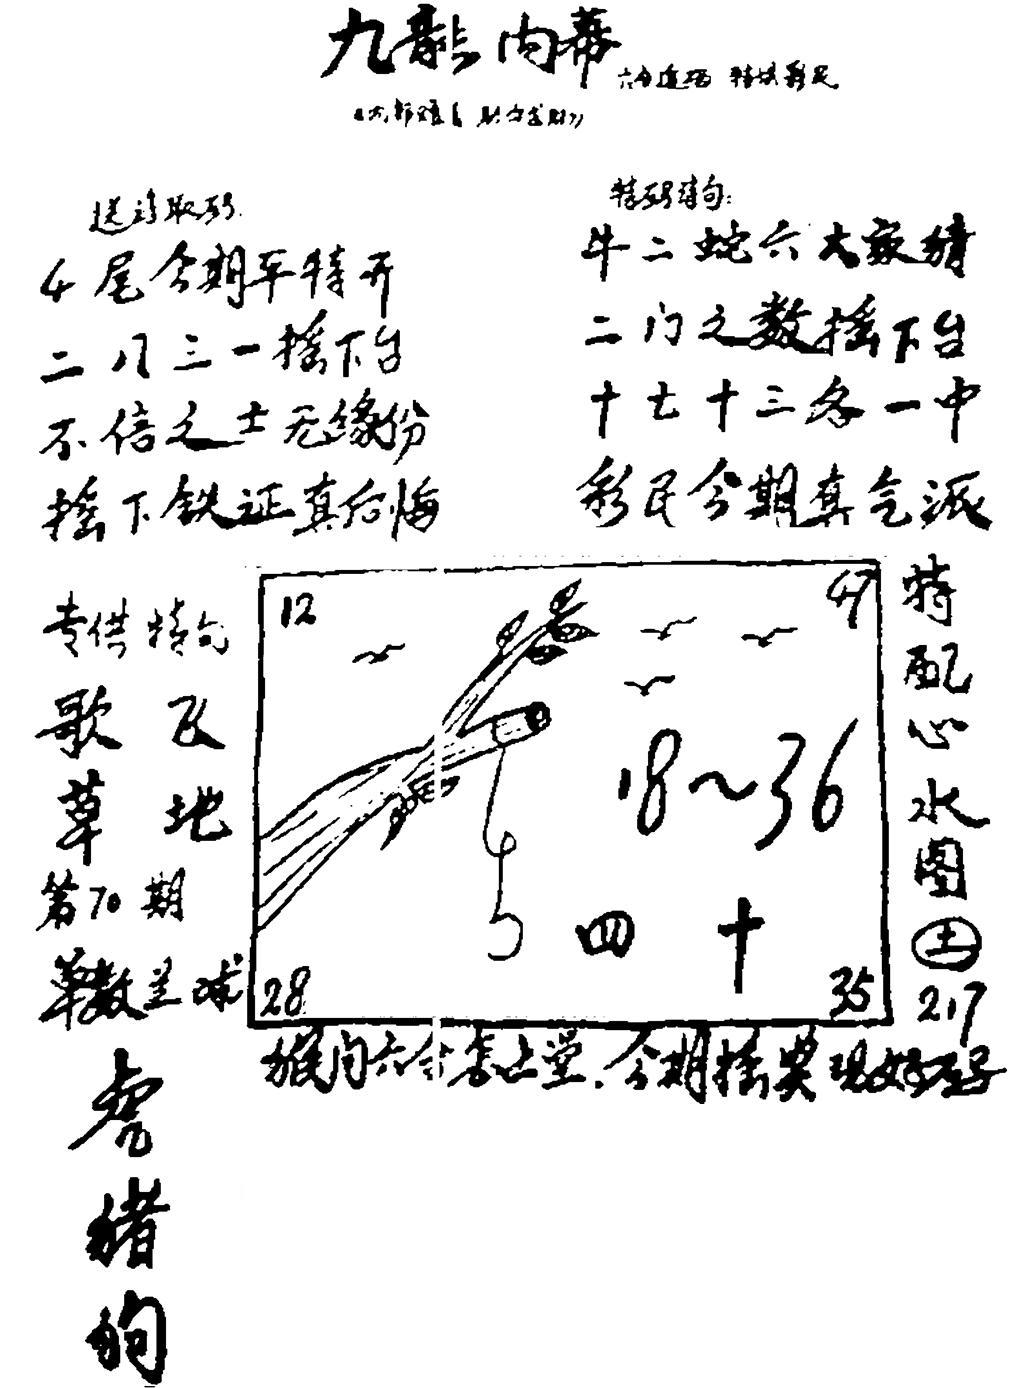 九龍内幕
送诗取码:
4尾今期平特开
二八三一摇下台
不信之士无缘份
摇下铁证真后悔
特码诗句:
牛二蛇六大家猜
二门之数摇下台
十七十三各一中
彩民今期真气派
专供特句
歌飞
草地
第70期
单数兰球
虎
猪
狗
12
47
18~36
四十
28
35
特配心水图
土
217
猴肉六合怎上堂.今期摇奖现好码子